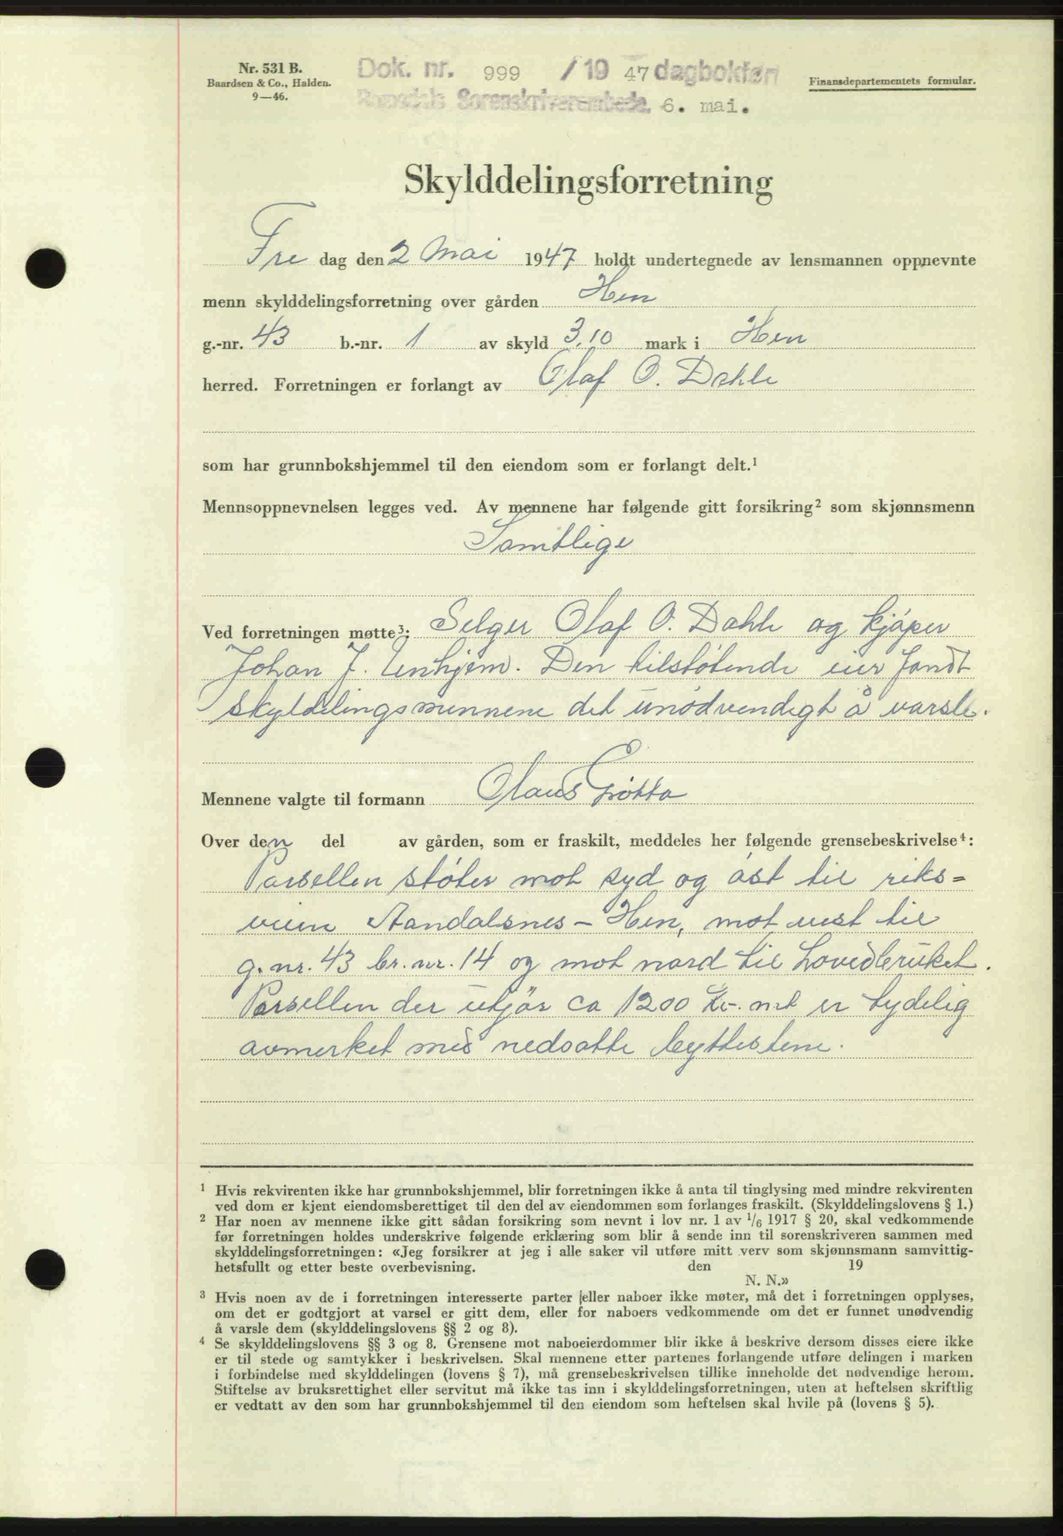 Nr. 531 B.
Baardsen & Co., Halden.
9—46.
Dok. nr. 999 /19 47 dagbokført
Romsdals Sorenskriverembede. 6. mai.
Finansdepartementets formular.
Skylddelingsforretning
Fre dag den 2 Mai 1947 holdt undertegnede av lensmannen oppnevnte
menn skylddelingsforretning over gården Hen
g.-nr. 43 b.-nr. 1 av skyld 3,10 mark i Hen
herred. Forretningen er forlangt av Olaf O. Dahle
som har grunnbokshjemmel til den eiendom som er forlangt delt.¹
Mennsoppnevnelsen legges ved. Av mennene har følgende gitt forsikring² som skjønnsmenn
Samtlige
Ved forretningen møtte³: Selger Olaf O. Dahle og kjøper
Johan J. Unhjem. Den tilstøtende eier fandt
skylddelingsmennene det unødvendigt å varsle.
Mennene valgte til formann Olaus Grøtta
Over den del av gården, som er fraskilt, meddeles her følgende grensebeskrivelse⁴:
Parsellen støter mot syd og øst til riks=
veien Aandalsnes – Hen, mot vest til
g.nr. 43 br.nr. 14 og mot nord til Hovedbruket.
Parsellen der utjør ca 1200 kv. mt er tydelig
avmerket med nedsatte byttestene.
¹ Hvis rekvirenten ikke har grunnbokshjemmel, blir forretningen ikke å anta til tinglysing med mindre rekvirenten
ved dom er kjent eiendomsberettiget til den del av eiendommen som forlanges fraskilt. (Skylddelingslovens § 1.)
² Har noen av mennene ikke gitt sådan forsikring som nevnt i lov nr. 1 av 1/6 1917 § 20, skal vedkommende
før forretningen holdes underskrive følgende erklæring som blir å sende inn til sorenskriveren sammen med
skylddelingsforretningen: «Jeg forsikrer at jeg i alle saker vil utføre mitt verv som skjønnsmann samvittig-
hetsfullt og etter beste overbevisning. den 19
N. N.»
³ Hvis noen av de i forretningen interesserte parter (eller naboer ikke møter, må det i forretningen opplyses,
om det er godtgjort at varsel er gitt dem, eller for naboers vedkommende om det er funnet unødvendig
å varsle dem (skylddelingslovens §§ 2 og 8).
⁴ Se skylddelingslovens §§ 3 og 8. Grensene mot naboeierdommer blir ikke å beskrive dersom disses eiere ikke
er til stede og samtykker i beskrivelsen. Skal mennene etter partenes forlangende utføre delingen i marken
i forbindelse med skylddelingen (lovens § 7), må grensebeskrivelsen tillike inneholde det nødvendige herom.
Stiftelse av bruksrettighet eller servitut må ikke tas inn i skylddelingsforretningen, uten at heftelsen skriftlig
er vedtatt av den som har grunnbokshjemmel til den eiendom som heftelsen skal hvile på (lovens § 5).